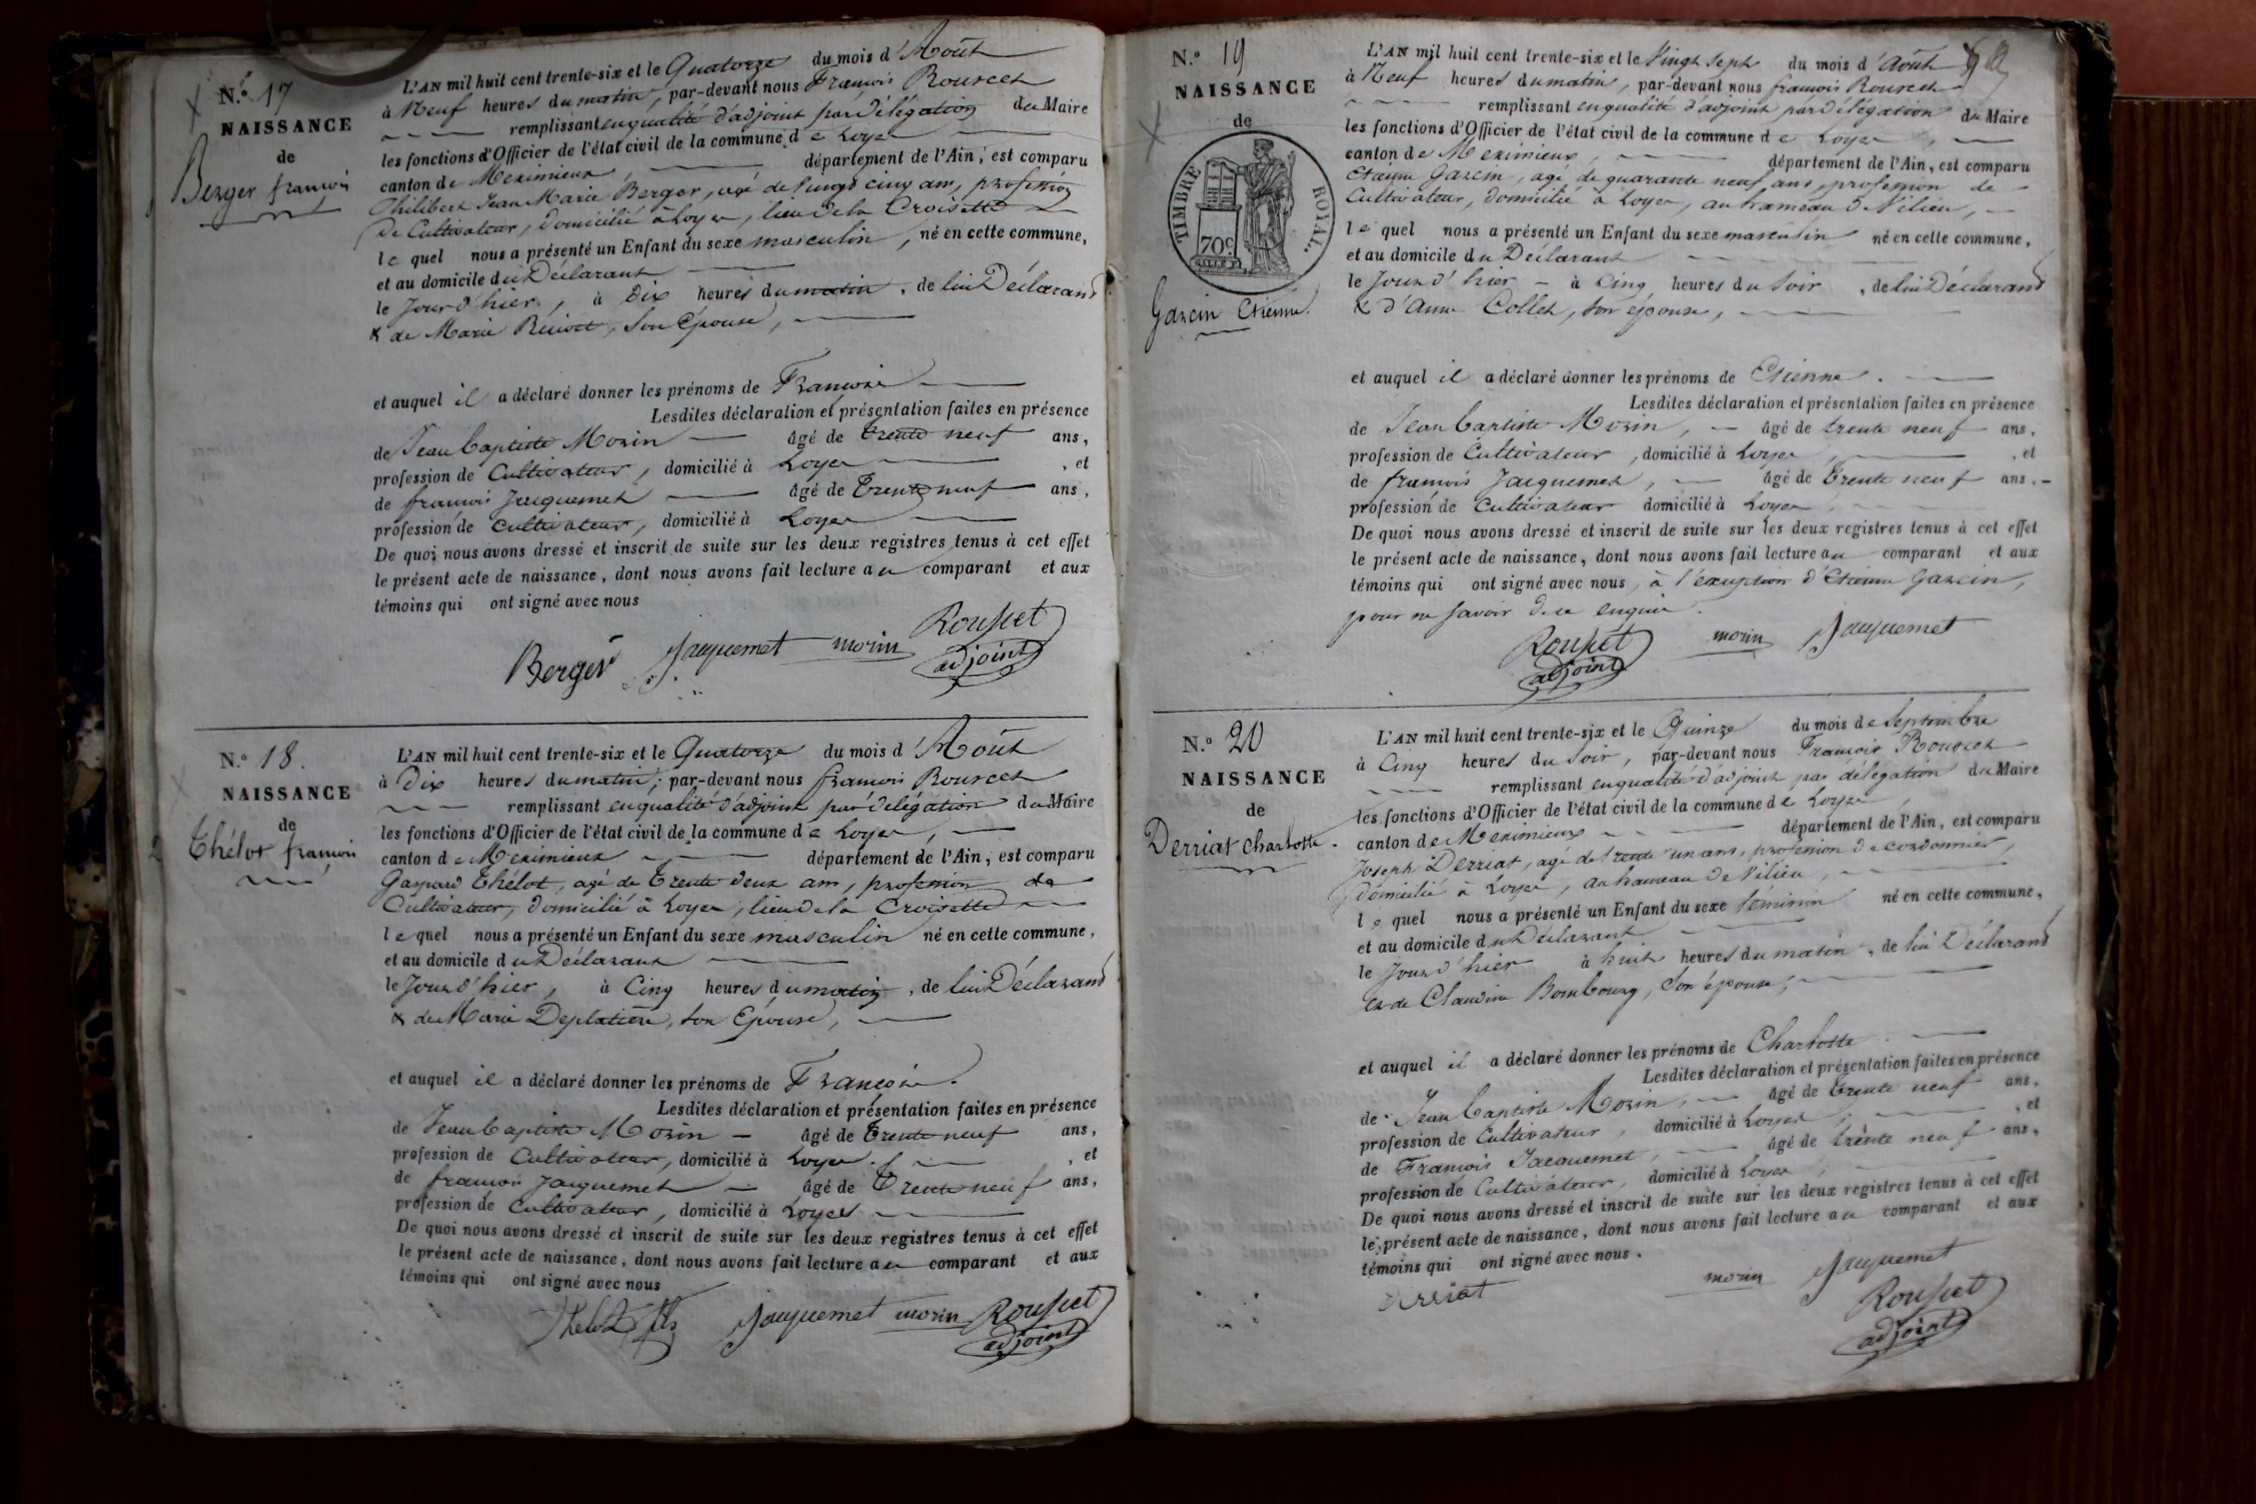 N.° 17
NAISSANCE
de
Berger françois
L'AN mil huit cent trente-six et le Quatorze du mois d'Août
à Neuf heures du matin, par-devant nous François Rousset
remplissant en qualité d'adjoint par délégation du Maire
les fonctions d'Officier de l'état civil de la commune de Loyes
canton de Meximieux, département de l'Ain, est comparu
Philibert Jean Marie Berger, agé de vingt cinq ans, profession
de Cultivateur, domicilié à Loyes, lieu de la Croisette
le quel nous a présenté un Enfant du sexe masculin, né en cette commune,
et au domicile du Déclarant
le Jour d'hier, à Dix heures du matin, de lui Déclarant
& de Marie, son Épouse,
et auquel il a déclaré donner les prénoms de François
Lesdites déclaration et présentation faites en présence
de Jean Baptiste Morin âgé de trente neuf ans,
profession de Cultivateur, domicilié à Loyes, et
de françois Jacquemet âgé de Trente neuf ans,
profession de Cultivateur, domicilié à Loyes
De quoi nous avons dressé et inscrit de suite sur les deux registres tenus à cet effet
le présent acte de naissance, dont nous avons fait lecture au comparant et aux
témoins qui ont signé avec nous
Berger Jacquemet morin Rousset
adjoint
N.° 18.
NAISSANCE
de
Thélot françois
L'AN mil huit cent trente-six et le Quatorze du mois d'Août
à Dix heures du matin, par-devant nous françois Rousset
remplissant en qualité d'adjoint par délégation du Maire
les fonctions d'Officier de l'état civil de la commune de Loyes,
canton de Meximieux département de l'Ain, est comparu
Gaspard Thélot, agé de Trente deux ans, profession de
Cultivateur, domicilié à Loyes, lieu de la Croisette
le quel nous a présenté un Enfant du sexe masculin né en cette commune,
et au domicile du Déclarant
le Jour d'hier, à Cinq heures du matin, de lui Déclarant
& de Marie Deplatière, son Épouse,
et auquel il a déclaré donner les prénoms de François.
Lesdites déclaration et présentation faites en présence
de Jean Baptiste Morin âgé de Trente neuf ans,
profession de Cultivateur, domicilié à Loyes, et
de françois Jacquemet âgé de Trente neuf ans,
profession de Cultivateur, domicilié à Loyes
De quoi nous avons dressé et inscrit de suite sur les deux registres tenus à cet effet
le présent acte de naissance, dont nous avons fait lecture au comparant et aux
témoins qui ont signé avec nous
Thelot fils Jacquemet morin Rousset
adjoint
N.° 19
NAISSANCE
de
TIMBRE ROYAL.
70c
Garcin Etienne.
L'AN mil huit cent trente-six et le Vingt Sept du mois d'Août
à Neuf heures du matin, par-devant nous françois Rousset
remplissant en qualité d'adjoint par délégation du Maire
les fonctions d'Officier de l'état civil de la commune de Loyes,
canton de Meximieux, département de l'Ain, est comparu
Etienne Garcin, agé de quarante neuf ans, profession de
Cultivateur, domicilié à Loyes, au hameau de Vilieu,
le quel nous a présenté un Enfant du sexe masculin né en cette commune,
et au domicile du Déclarant
le Jour d'hier à Cinq heures du Soir, de lui Déclarant
& d'Anne Collet, son épouse,
et auquel il a déclaré donner les prénoms de Etienne.
Lesdites déclaration et présentation faites en présence
de Jean Baptiste Morin, âgé de trente neuf ans,
profession de Cultivateur, domicilié à Loyes, et
de françois Jacquemet, âgé de trente neuf ans,
profession de Cultivateur domicilié à Loyes,
De quoi nous avons dressé et inscrit de suite sur les deux registres tenus à cet effet
le présent acte de naissance, dont nous avons fait lecture au comparant et aux
témoins qui ont signé avec nous, à l'exception d'Etienne Garcin,
pour ne savoir de ce enquis.
Rousset morin Jacquemet
adjoint
N.° 20
NAISSANCE
de
Derriat Charlotte.
L'AN mil huit cent trente-six et le Quinze du mois de Septembre
à Cinq heures du Soir, par-devant nous François Rousset
remplissant en qualité d'adjoint par délégation du Maire
les fonctions d'Officier de l'état civil de la commune de Loyes,
canton de Meximieux département de l'Ain, est comparu
Joseph Derriat, agé de trente un ans, profession de cordonnier,
domicilié à Loyes, au hameau de Vilieu,
le quel nous a présenté un Enfant du sexe féminin né en cette commune,
et au domicile du Déclarant
le Jour d'hier à huit heures du matin, de lui Déclarant
et de Claudine Bombourg, son épouse,
et auquel il a déclaré donner les prénoms de Charlotte
Lesdites déclaration et présentation faites en présence
de Jean Baptiste Morin, âgé de Trente neuf ans,
profession de Cultivateur, domicilié à Loyes, et
de François Jacquemet, âgé de trente neuf ans,
profession de Cultivateur, domicilié à Loyes,
De quoi nous avons dressé et inscrit de suite sur les deux registres tenus à cet effet
le présent acte de naissance, dont nous avons fait lecture au comparant et aux
témoins qui ont signé avec nous.
Derriat morin Jacquemet
Rousset
adjoint